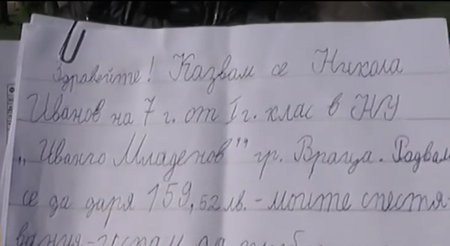 Здравейте! Казвам се Никола
Иванов на 7 г. от I г. клас в НУ
„Иванчо Младенов" гр. Враца. Радвам
се да даря 159,52 лв. - моите спестя-
вания - искам да